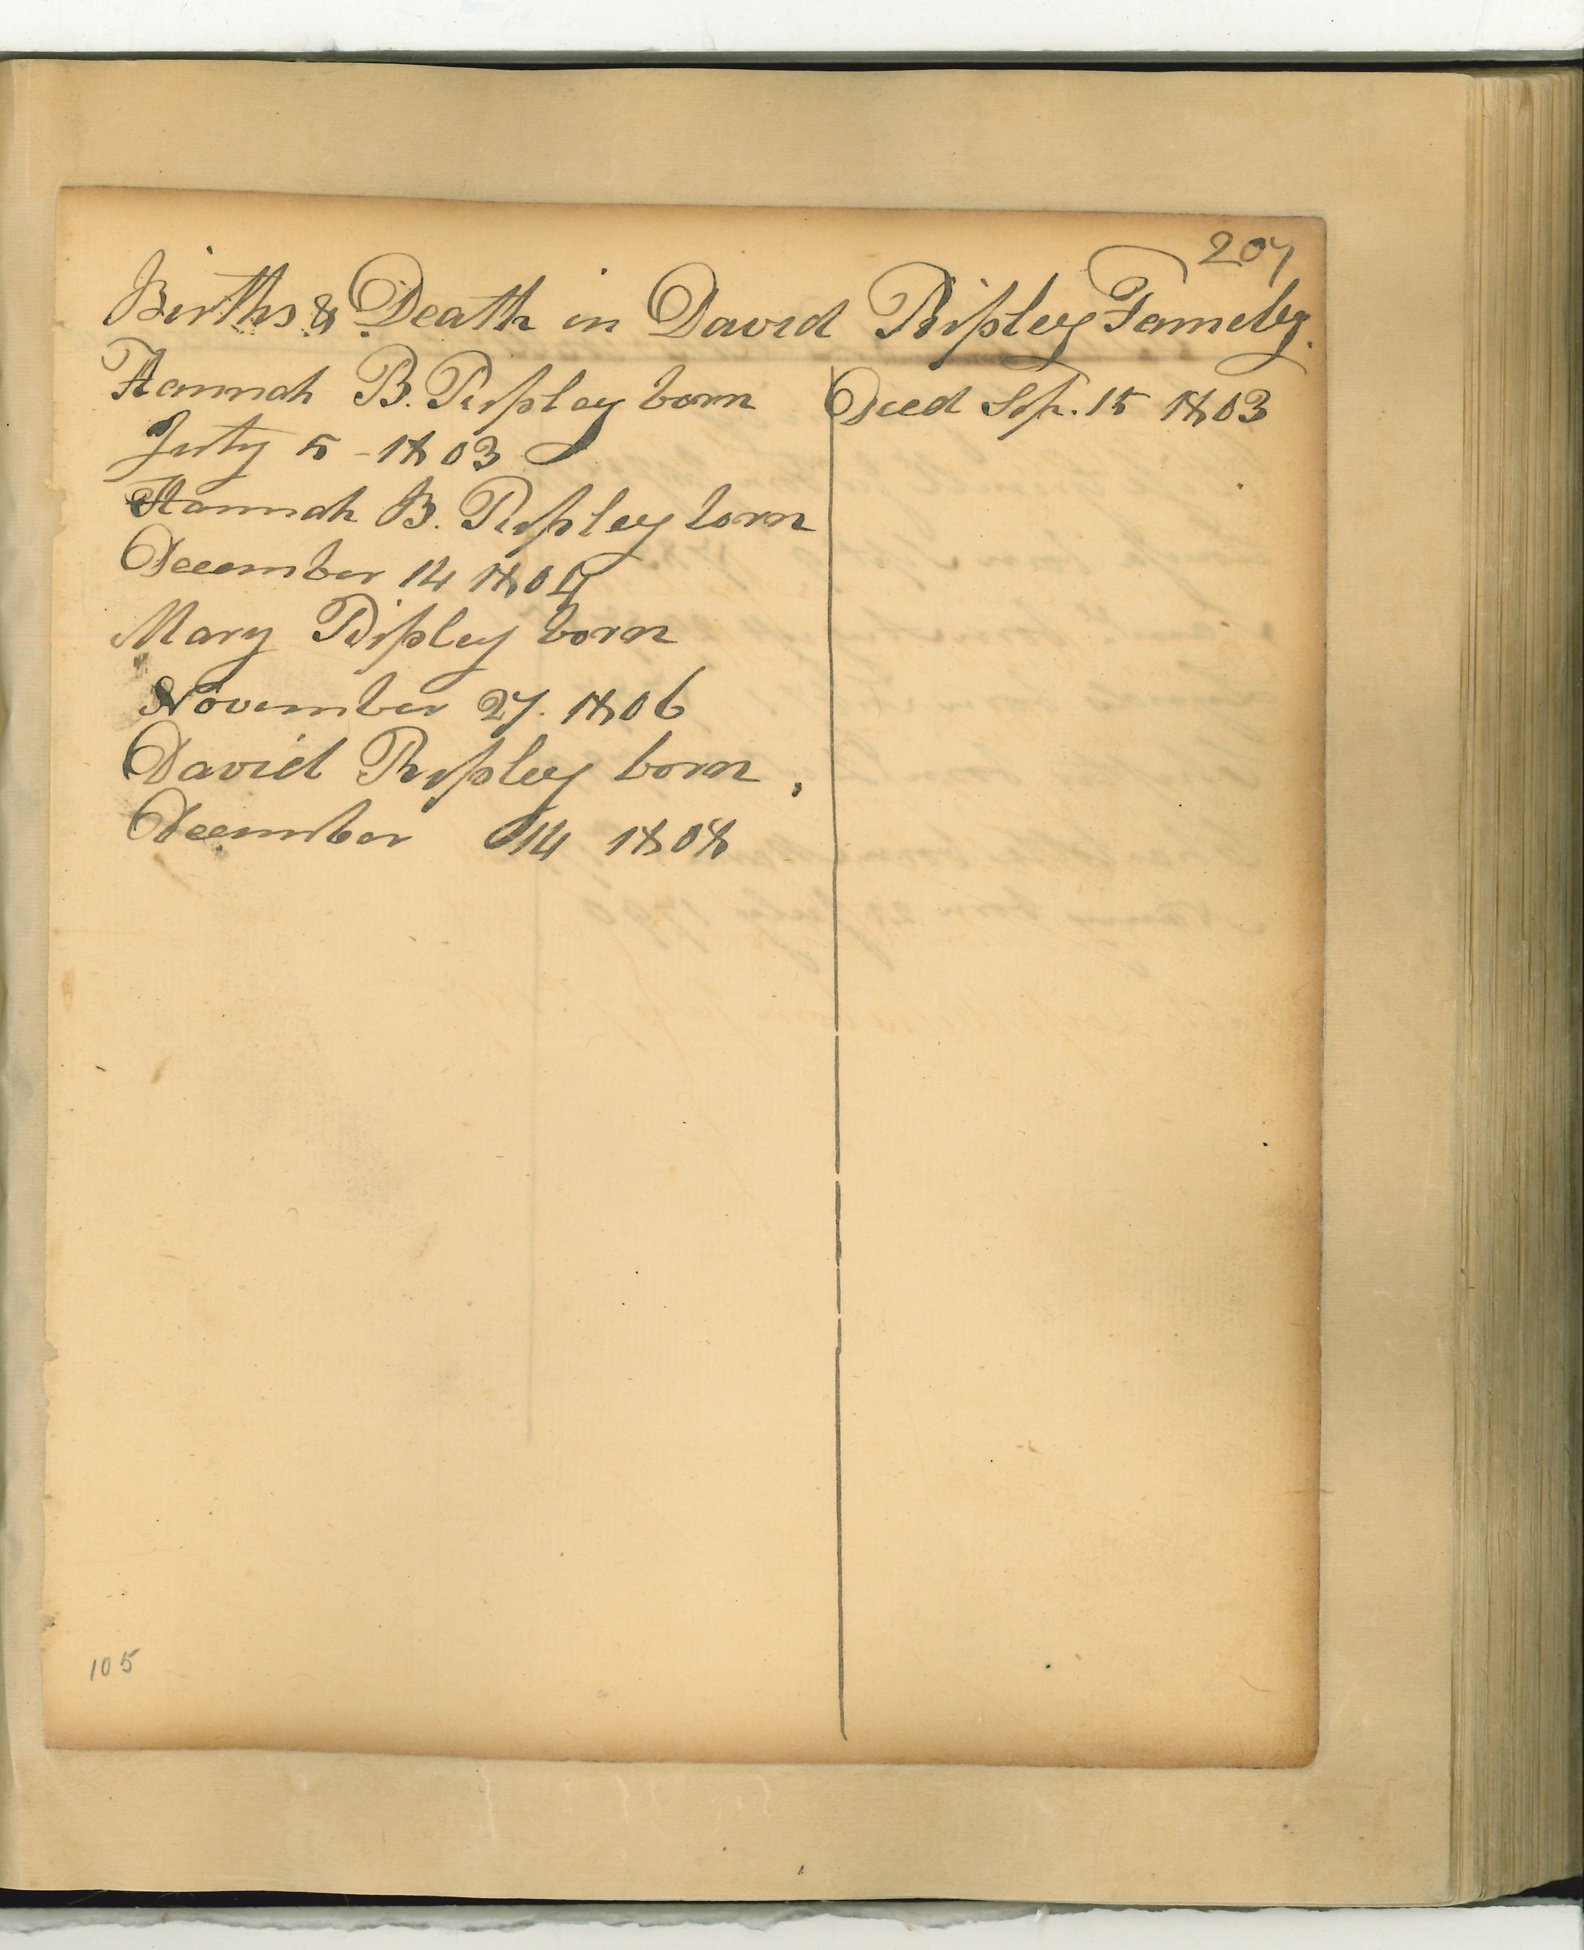 207
Births & Death in David Ripley Famely.
Hannah B. Ripley born
July 5 - 1803
Died Sep. 15 1803
Hannah B. Ripley born
December 14 1804
Mary Ripley born
November 27. 1806
David Ripley born,
December 14 1808
105